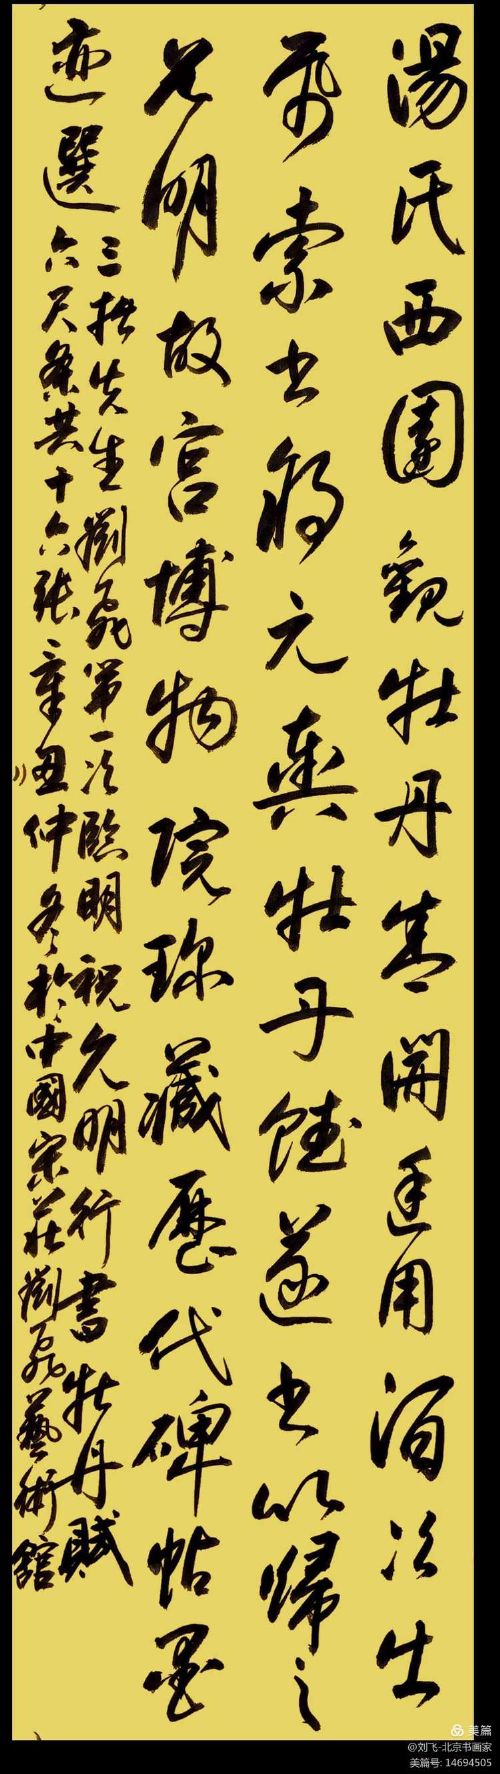 湯氏西園觀牡丹盛開廷用酒次出
帋索書為元輿牡丹賦遂書以歸之
允明故宮博物院珍藏歷代碑帖墨
迹選
三先生劉飛第一次臨明祝允明行書牡丹賦
六尺條共十六張辛丑仲冬於中國宋莊劉飛藝術館
美篇
@刘飞-北京书画家
美篇号: 14694505